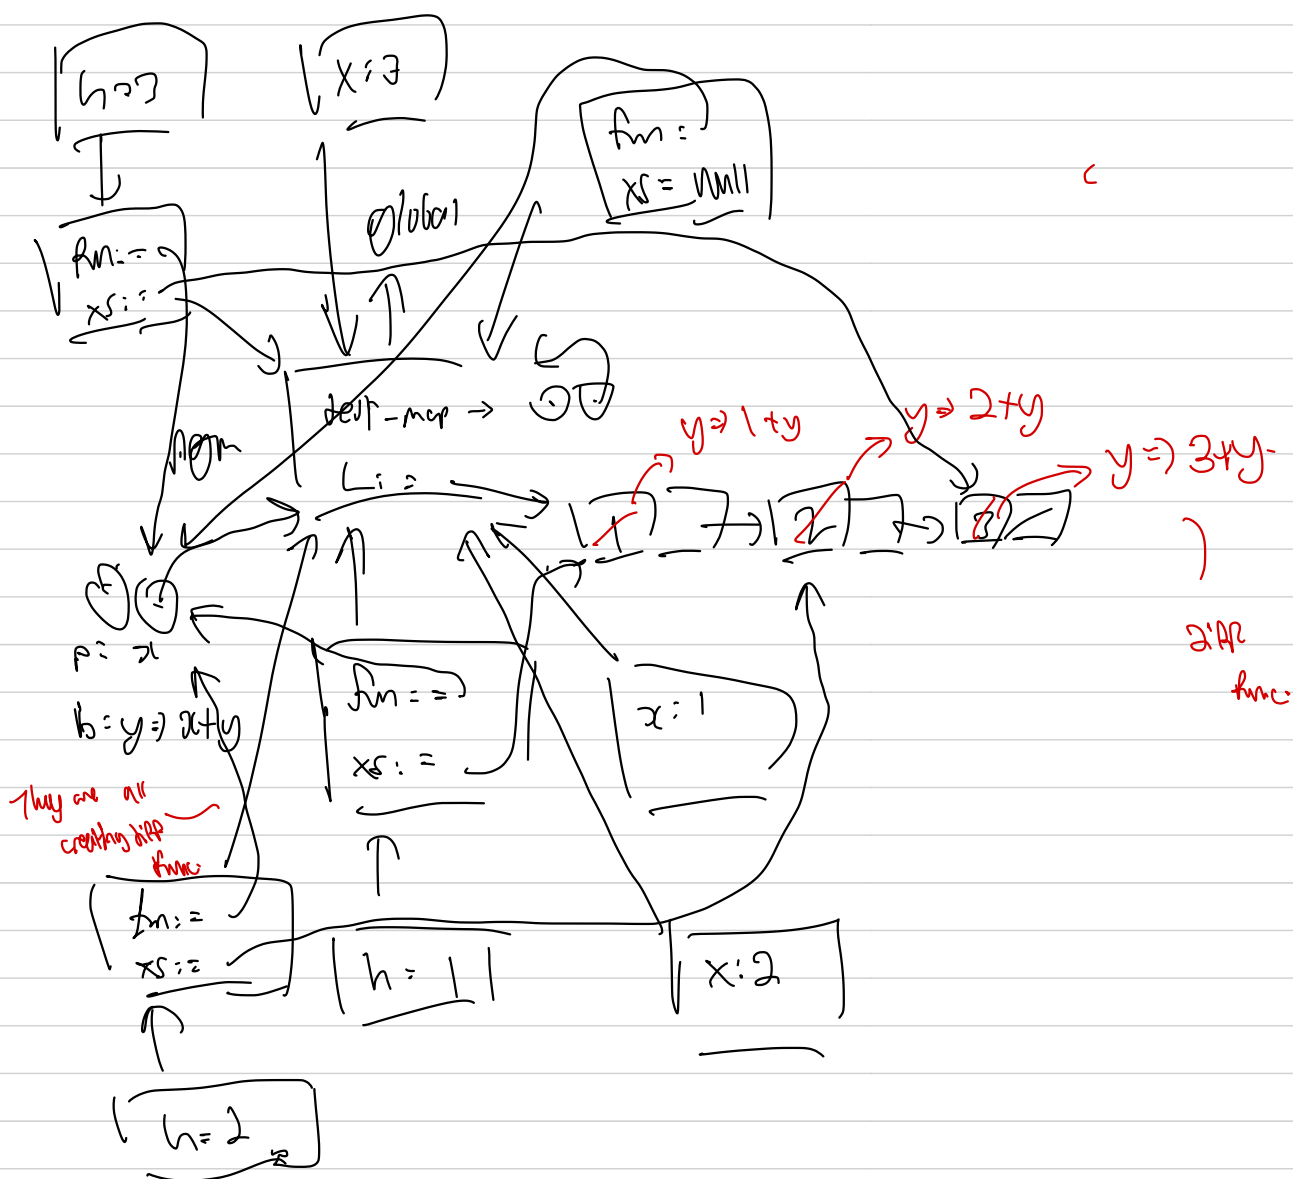 h=3
x:3
fm:=
xs:= null
global
fm:=
xs:=
test_map →
L:=
y⇒1+y
y⇒2+y
y⇒3+y
1
2
3
diff
func.
p: x
b: y⇒x+y
fm:=
xs:=
x:1
They are all
creating diff
func.
fm:=
xs:=
h=1
x:2
h=2